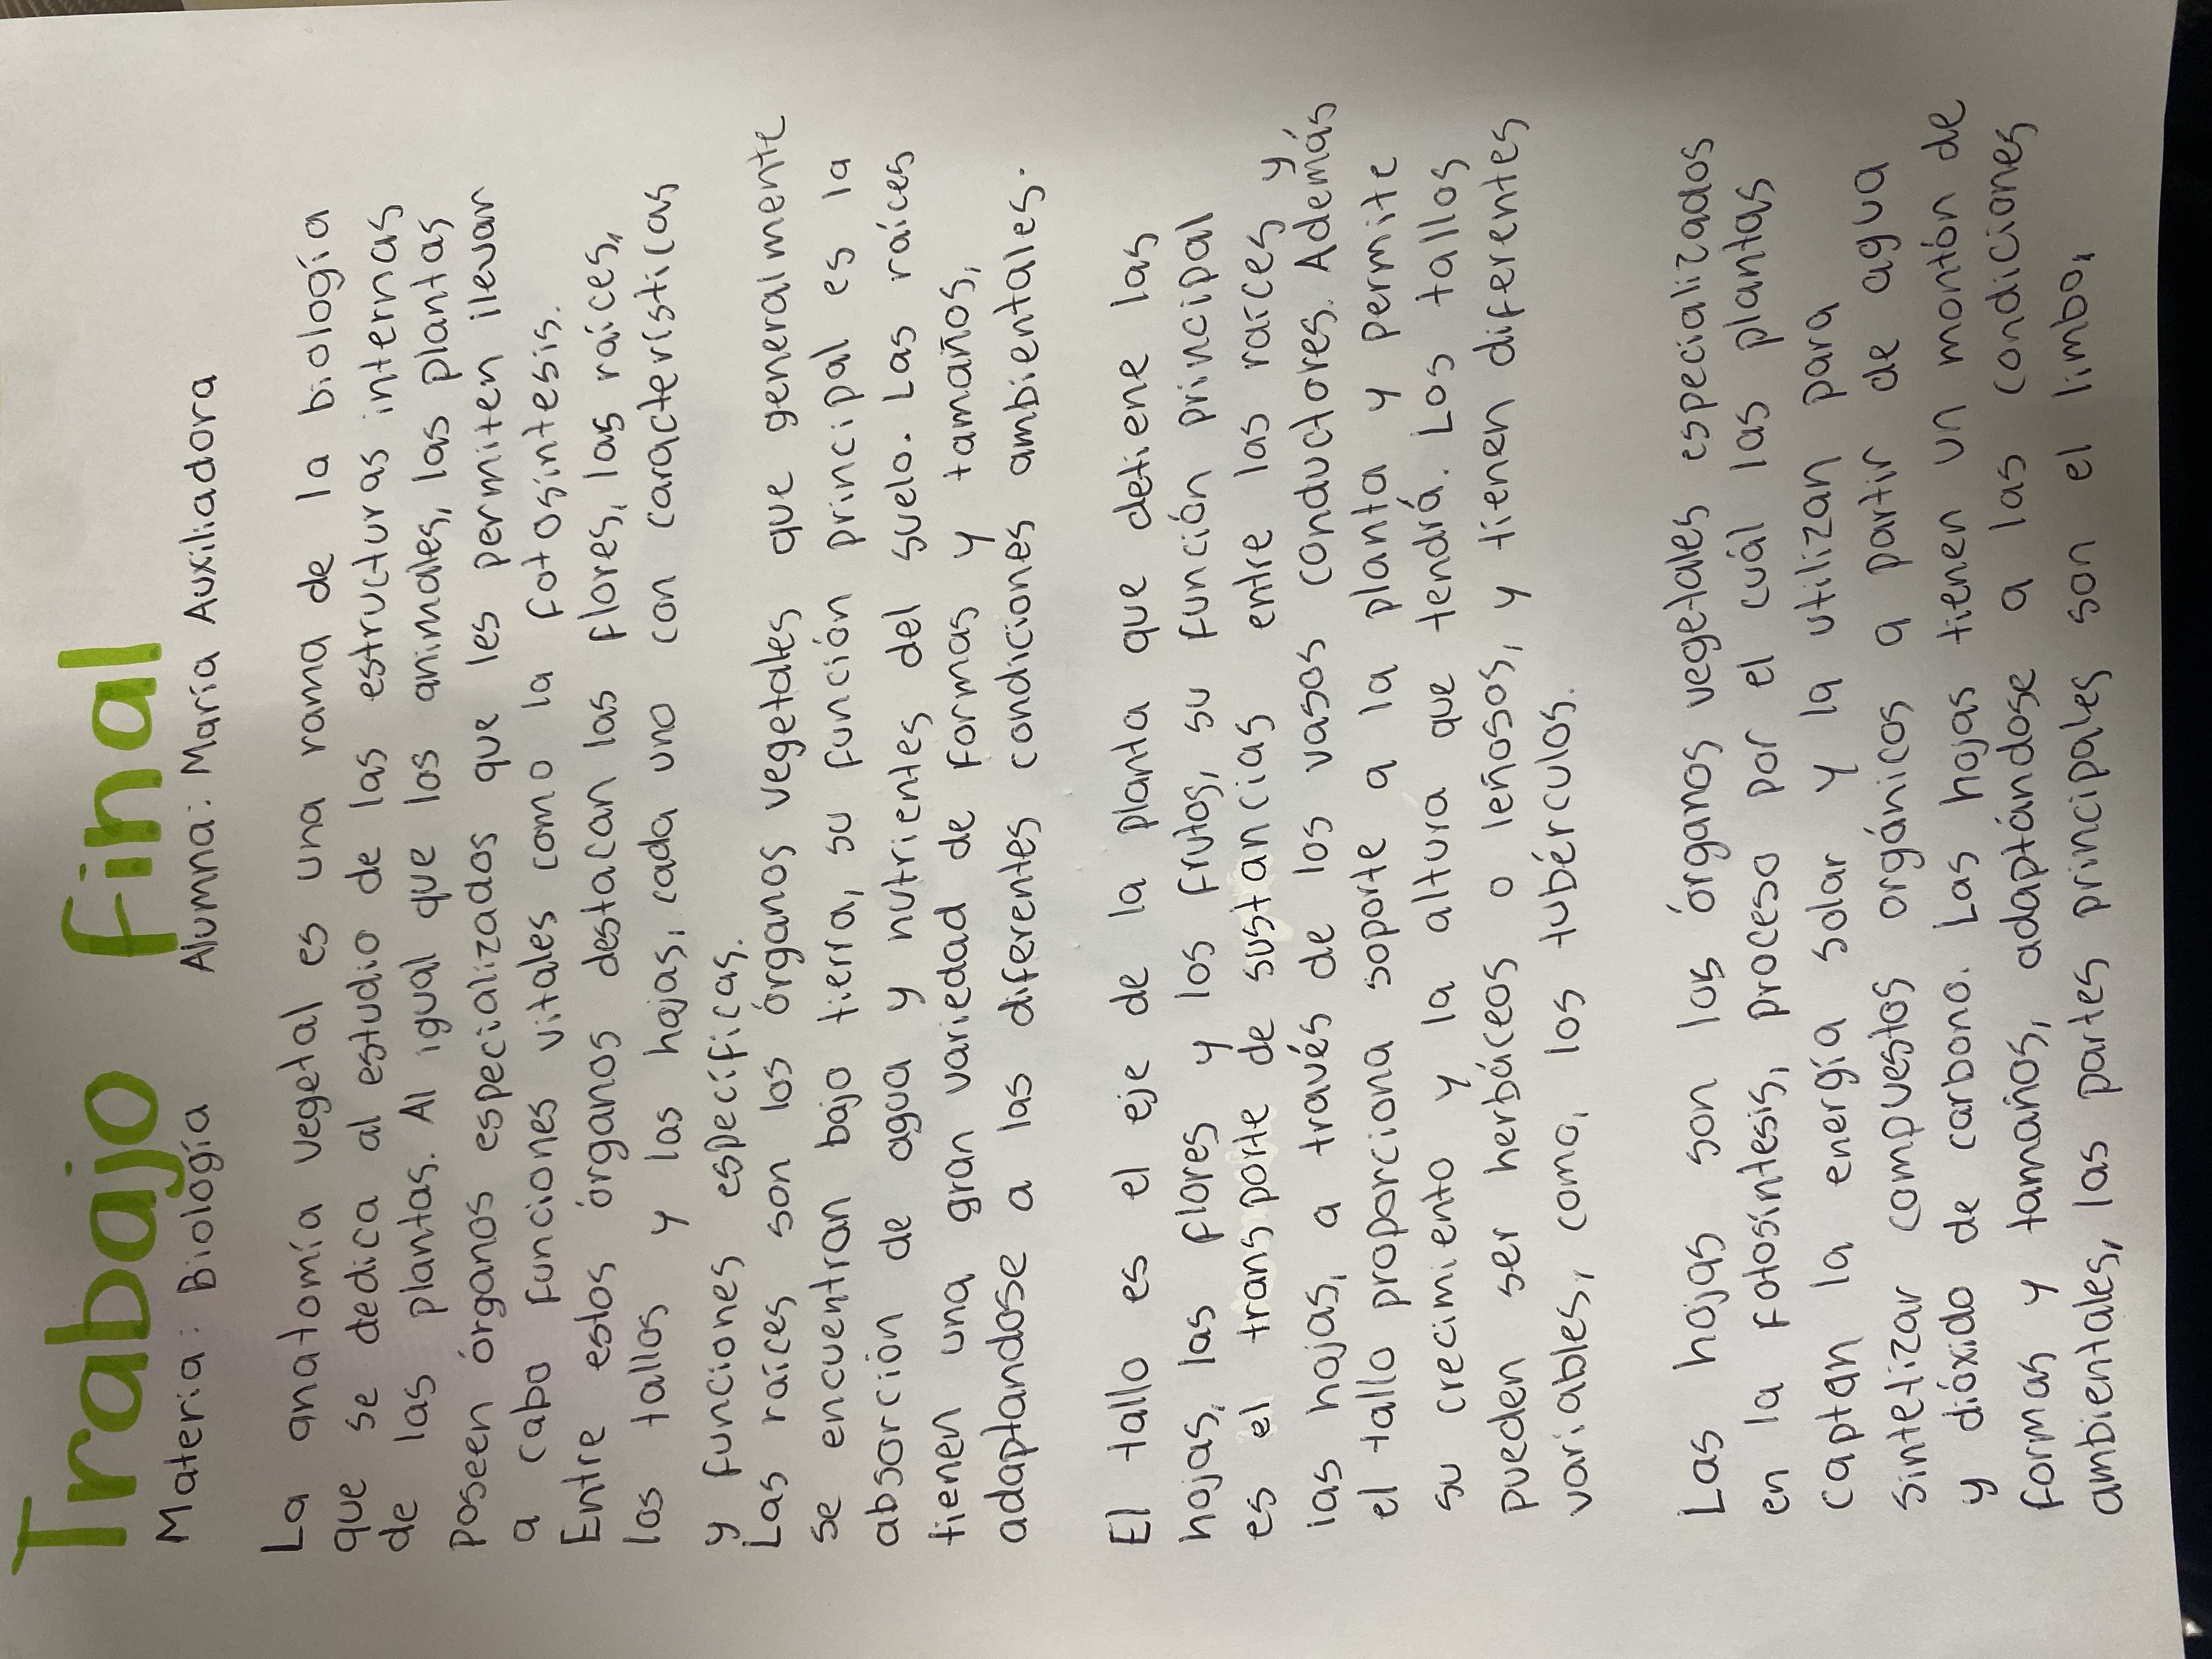 Trabajo final
Materia: Biología Alumna: María Auxiliadora
La anatomía vegetal es una rama de la biología
que se dedica al estudio de las estructuras internas
de las plantas. Al igual que los animales, las plantas
poseen órganos especializados que les permiten llevar
a cabo funciones vitales como la fotosíntesis.
Entre estos órganos destacan las flores, las raíces,
los tallos y las hojas, cada uno con características
y funciones específicas.
Las raíces son los órganos vegetales que generalmente
se encuentran bajo tierra, su función principal es la
absorción de agua y nutrientes del suelo. Las raíces
tienen una gran variedad de formas y tamaños,
adaptandose a las diferentes condiciones ambientales.
El tallo es el eje de la planta que detiene las
hojas, las flores y los frutos, su función principal
es el transporte de sustancias entre las raíces y
las hojas, a través de los vasos conductores. Además
el tallo proporciona soporte a la planta y permite
su crecimiento y la altura que tendrá. Los tallos
pueden ser herbáceos o leñosos, y tienen diferentes
variables, como, los tubérculos.
Las hojas son los órganos vegetales especializados
en la fotosíntesis, proceso por el cuál las plantas
captan la energía solar y la utilizan para
sintetizar compuestos orgánicos a partir de agua
y dióxido de carbono. Las hojas tienen un montón de
formas y tamaños, adaptándose a las condiciones
ambientales, las partes principales son el limbo,